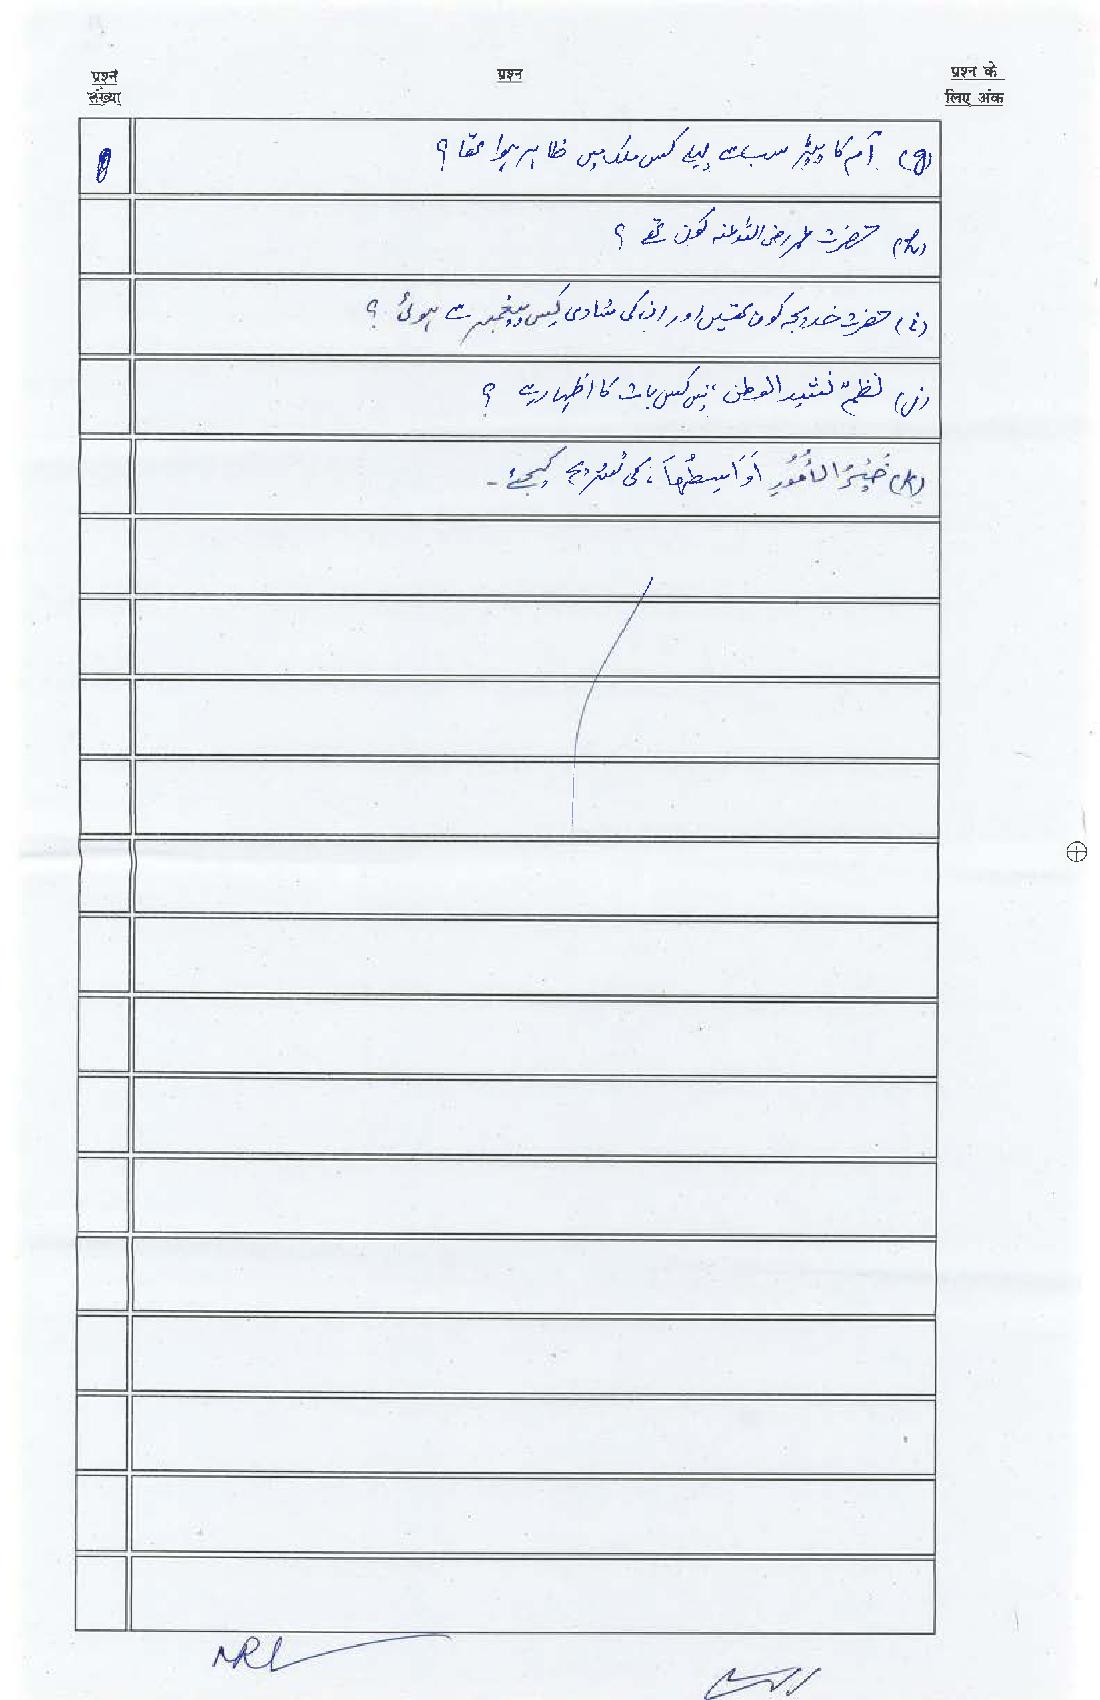 प्रश्न संख्या
प्रश्न
प्रश्न के लिए अंक
(g) آم کا پیڑ سب سے پہلے کس ملک میں ظاہر ہوا تھا؟
(h) حضرت عمر رضی اللہ عنہ کون تھے؟
(i) حضرت خدیجہ کون تھیں اور ان کی شادی کس پیغمبر سے ہوئی؟
(j) نظم "نشید الوطن" میں کس بات کا اظہار ہے؟
(k) خَيْرُ الأُمُوْرِ أَوَاسِطُهَا، کی تشریح کیجئے۔